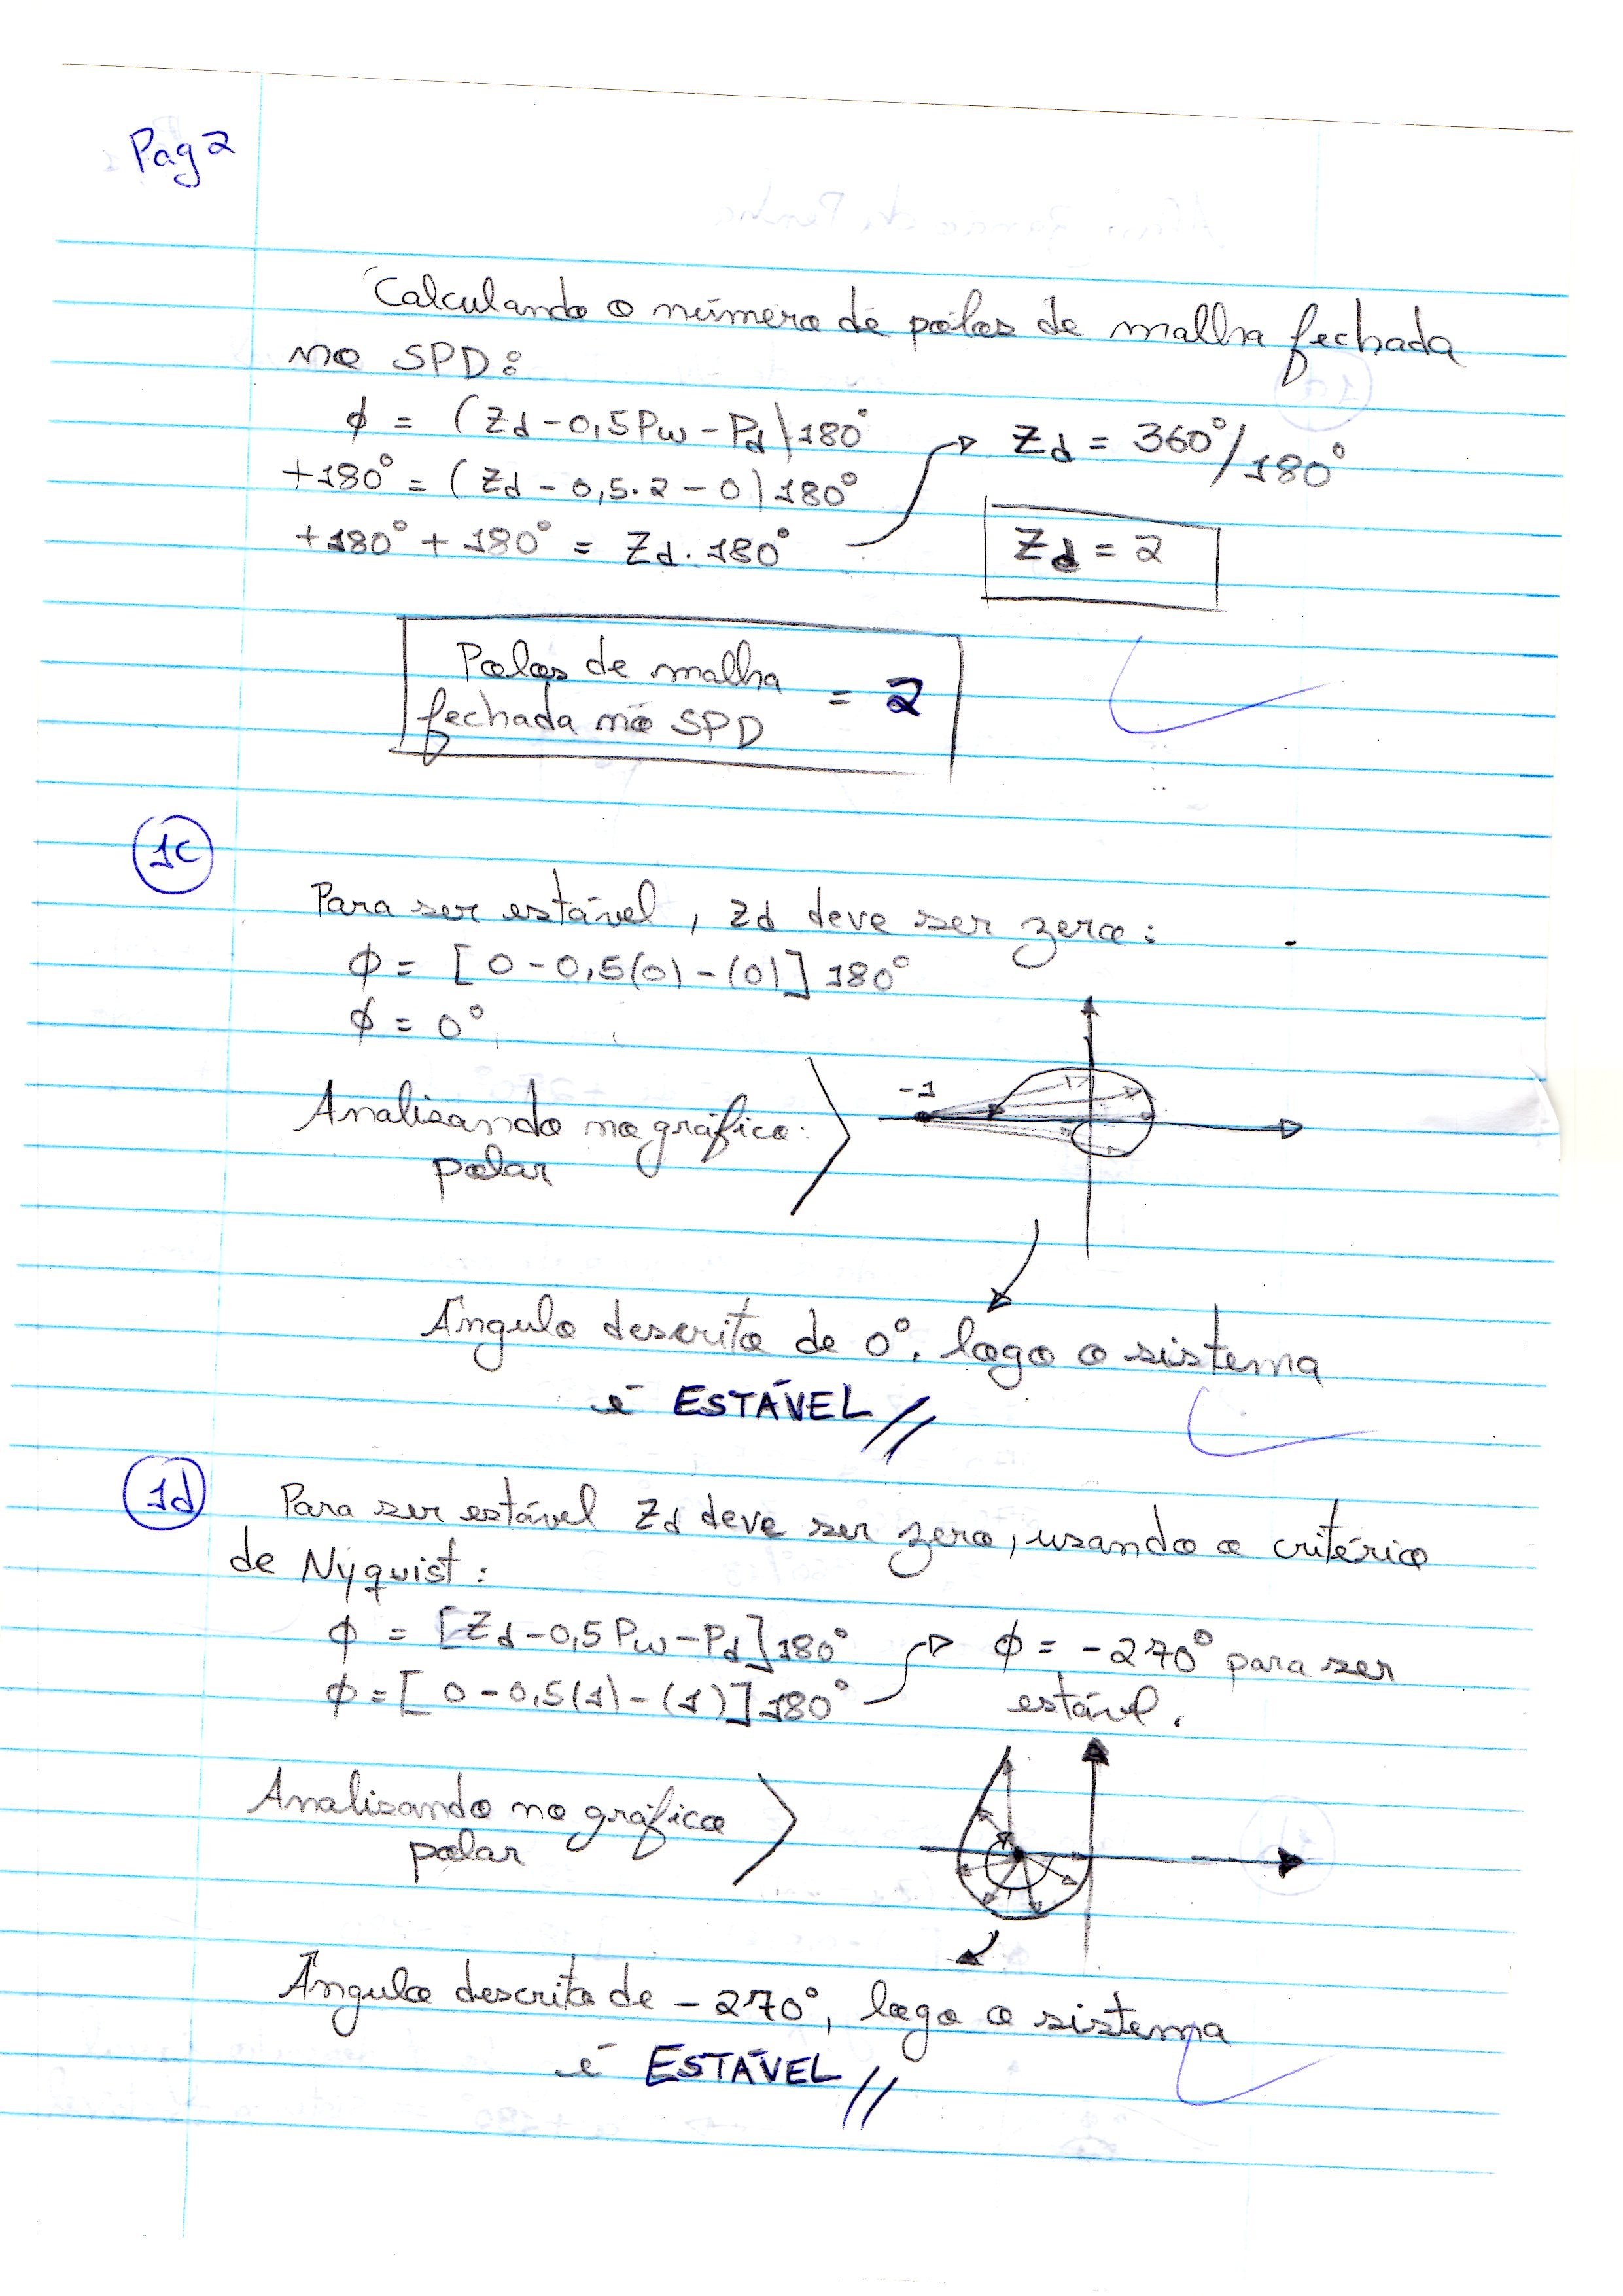 Pag 2
Calculando o número de pólos de malha fechada
no SPD:
ϕ = (Zd - 0,5Pw - Pd)180° Zd = 360°/180°
+180° = (Zd - 0,5.2 - 0)180°
+180° + 180° = Zd. 180° Zd = 2
Polos de malha
fechada no SPD = 2
1c
Para ser estável, Zd deve ser zero:
ϕ = [0 - 0,5(0) - (0)] 180°
ϕ = 0°,
-1
Analisando no gráfico:
polar
Ângulo descrito de 0°, logo o sistema
é ESTÁVEL //
1d Para ser estável Zd deve ser zero, usando o critério
de Nyquist:
ϕ = [Zd - 0,5Pw - Pd]180° ϕ = -270° para ser
ϕ = [0 - 0,5(1) - (1)]180° estável.
Analisando no gráfico
polar
Ângulo descrito de -270°, logo o sistema
é ESTÁVEL //